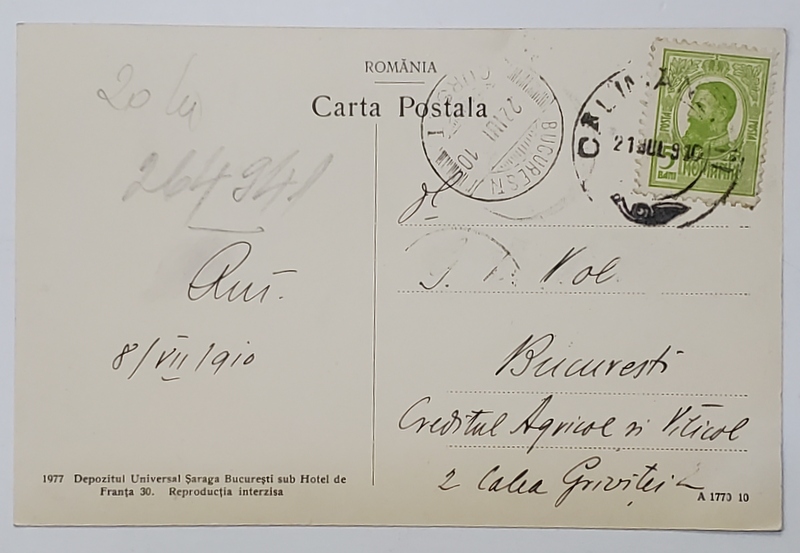 ROMÂNIA
Carta Postala
20 lei
264941
8/VII/910
1977 Depozitul Universal Şaraga Bucureşti sub Hotel de
Franţa 30. Reproducţia interzisa
BUCUREŞTI
22 IUL 10
21 IUL 910
5 BANI
POSTA
ROMANIA
Dl
Vol.
Bucureşti
Creditul Agricol si Viticol
2 Calea Griviţei 2
A 1770 10